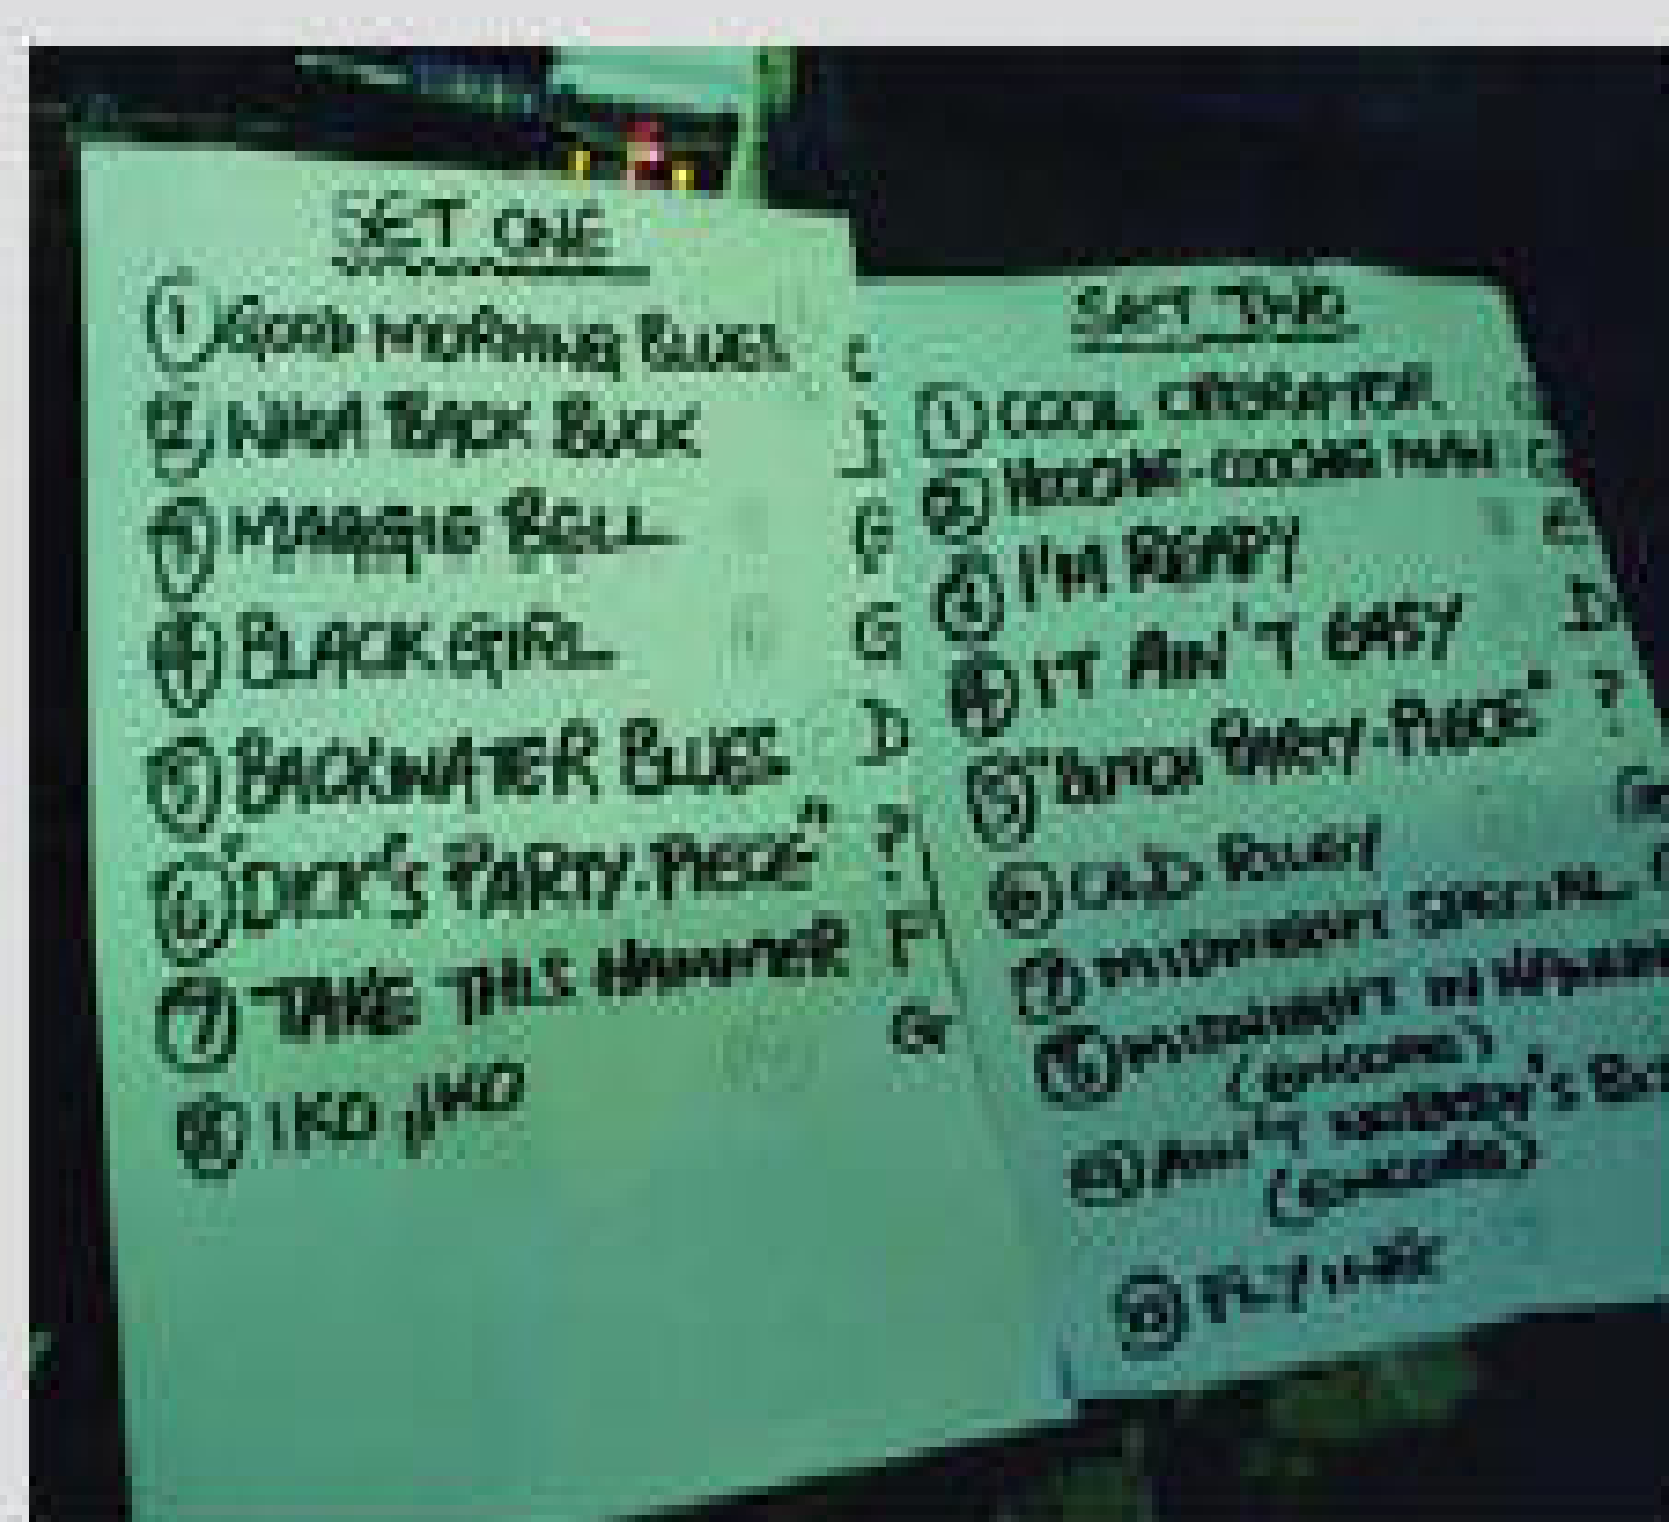 SET ONE
1 GOOD MORNING BLUES C
2 BACK BUCK
3 MAGGIE BELL G
4 BLACK GIRL G
5 BACKWATER BLUES D
6 "DICK'S PARTY-PIECE" ?
7 TAKE THIS HAMMER F
8 IKO IKO G
SET TWO
1 COOL OPERATOR
2 HOOCHIE-COOCHIE MAN
3 I'M READY E
4 IT AIN'T EASY D
5 "BUTCH PARTY-PIECE" ?
6 G
7 MIDNIGHT SPECIAL
8 MIDNIGHT IN
(ENCORE)
9 AIN'T NOBODY'S
(ENCORE)
10